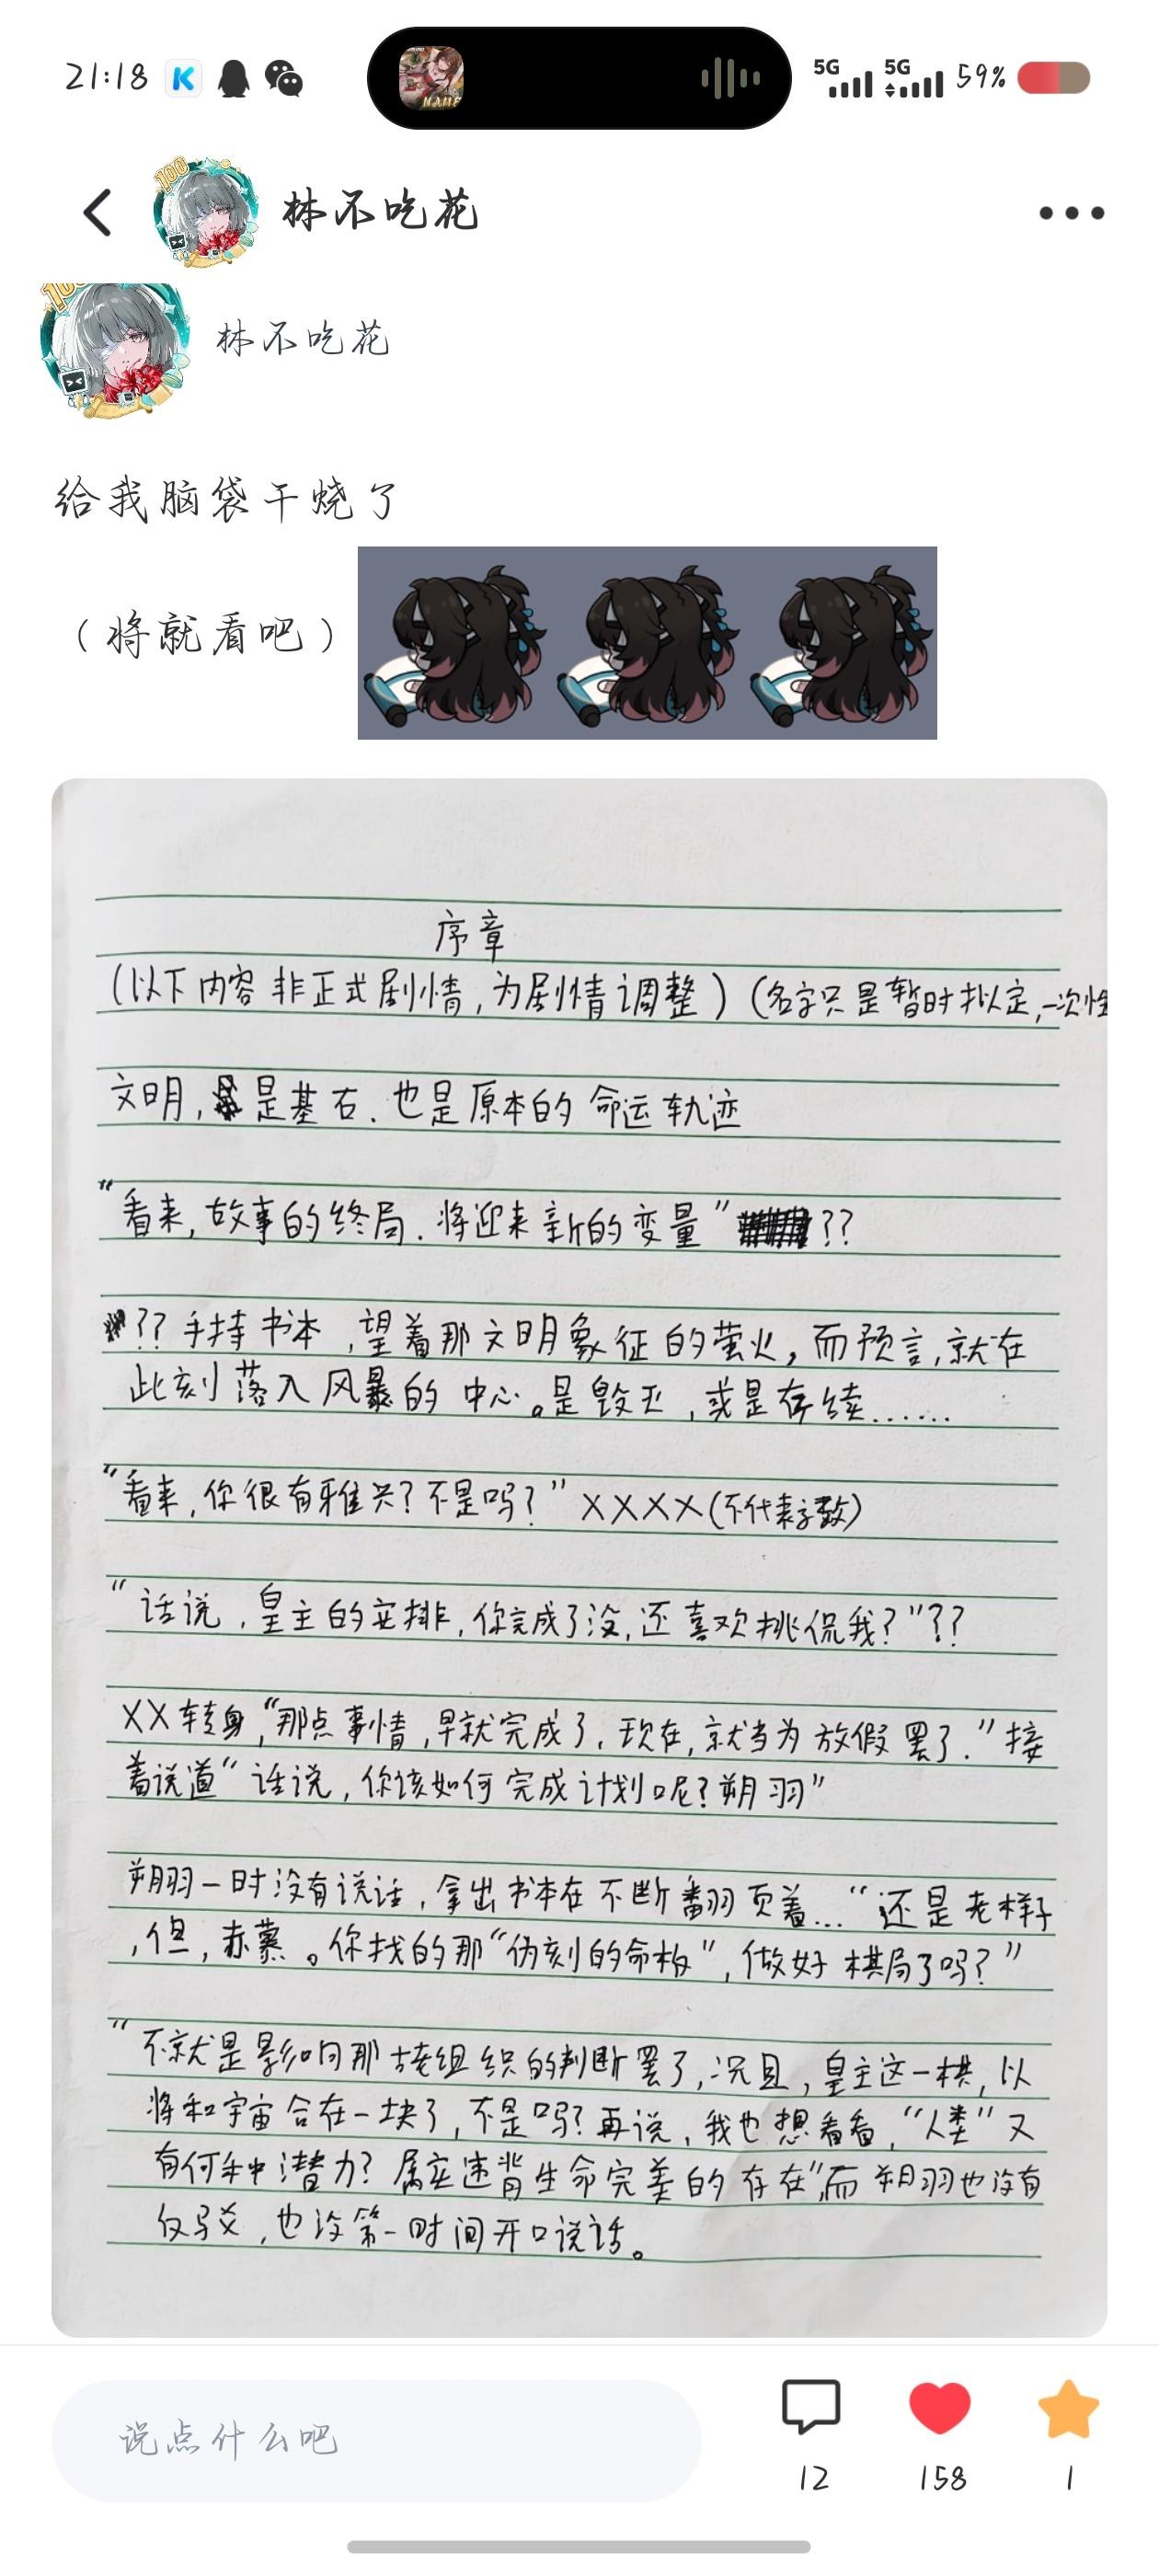 21:18
5G 5G 59%
林不吃花
林不吃花
给我脑袋干烧了
（将就看吧）
序章
(以下内容非正式剧情,为剧情调整)(名字只是暂时拟定,一次性
文明,是基石.也是原本的命运轨迹
“看来,故事的终局.将迎来新的变量”??
??手持书本,望着那文明象征的萤火,而预言,就在
此刻落入风暴的中心。是毁灭,或是存续......
“看来,你很有雅兴?不是吗?”XXXX(不代表字数)
“话说,皇主的安排,你完成了没,还喜欢挑侃我?”??
XX转身,“那点事情,早就完成了,现在,就当为放假罢了.”接
着说道“话说,你该如何完成计划呢?朔羽”
朔羽一时没有说话,拿出书本在不断翻页着...“还是老样子
,但,赤纂。你找的那“伪刻的命板”,做好棋局了吗?”
“不就是影响那搂组织的判断罢了,况且,皇主这一棋,以
将和宇宙合在一块了,不是吗?再说,我也想看看,“人类”又
有何种潜力?属实违背生命完美的存在”,而朔羽也没有
反驳,也没第一时间开口说话。
说点什么吧
12
158
1